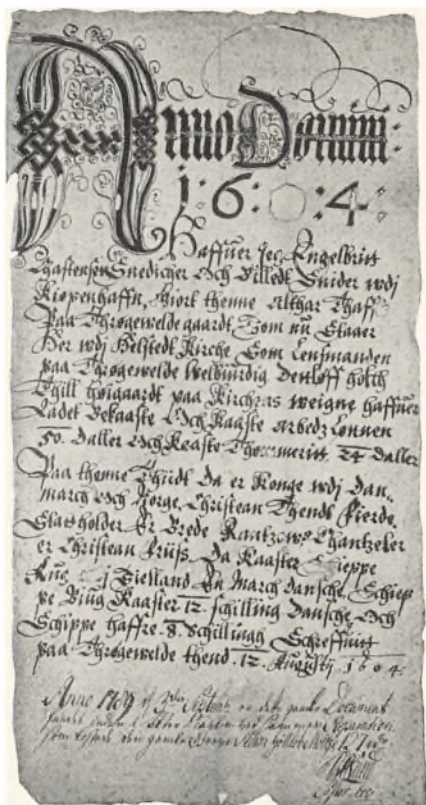 Anno Domini:
1:6:0:4:
Haffuer Jec Engelbritt
Snedicher Och Billedt Snider wdj
Kiøpenhaffn, Giort thenne Althar Thaffle
Paa Throgewelde gaardt, Som nu Staaer
Her wdj Helsted Kirche Som Lensmanden
paa Throgewelde Welburdig Detloff Holch
Thill Høigaardt paa Kirchens weigne haffuer
Ladet Bekaaste Och Kaaste Arbedz Lønnen
50. Daller Och Kaaste Thømmeritt 24 Daller
Paa thenne Thiidt Da er Konge wdj Dan„
march Och Norge, Christean Thendt Fierde,
Statholder Er Brede Rantzow, Chantzeler
er Christean Friiss. Da Kaaster Skieppe
Rug j Sielland En March dansche, Schiep
pe Biug Kaaster 12. schilling Dansche, Och
Schippe haffre. 8. Schillingh Schreffuitt
paa Throgewelde thend. 12. Augustij. 1604.
Anno 1709 d. er dette gamle Document
funden
den gamle